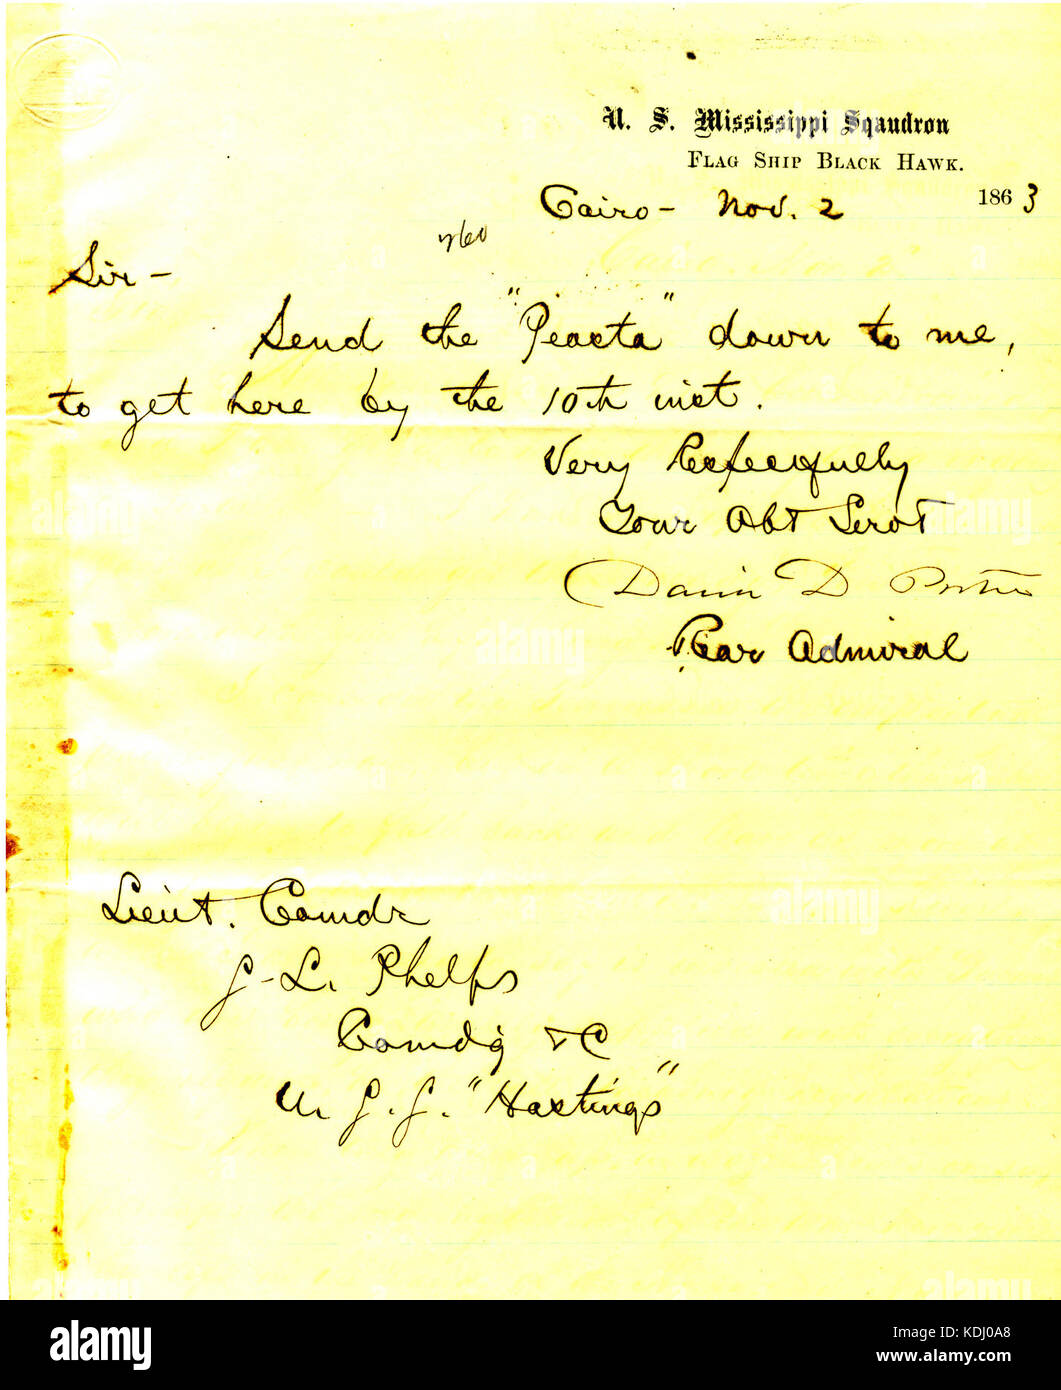 U. S. Mississippi Sqaudron
FLAG SHIP BLACK HAWK.
Cairo - Nov. 2 1863
760
Sir -
Send the "Peosta" down to me,
to get here by the 10th inst.
Very Respectfully
Your Obt Servt
David D Porter
Rear Admiral
Lieut. Comdr
S. L. Phelps
Comdg &C
U. S. S. "Hastings"
alamy
Image ID: KDJ0A8
www.alamy.com